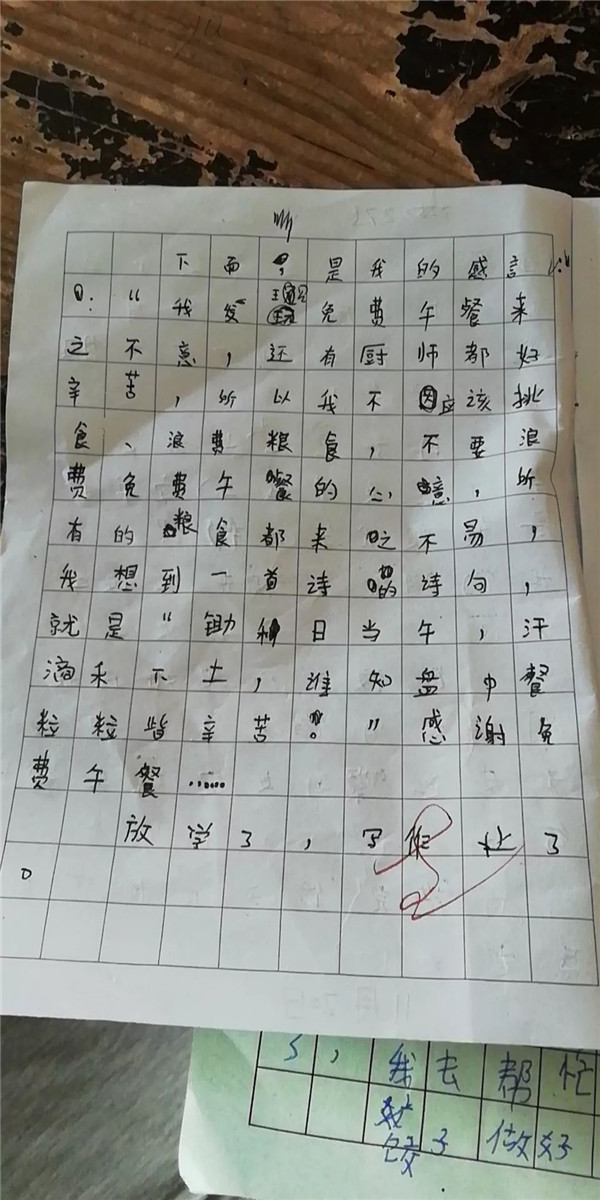 下面，是我的感言
：“我发现免费午餐来
之不意，还有厨师都好
辛苦，所以我不应该挑
食、浪费粮食，不要浪
费免费午餐的心意，所
有的粮食都来之不易，
我想到一首诗的诗句，
就是“锄禾日当午，汗
滴禾下土，谁知盘中餐
粒粒皆辛苦。”感谢免
费午餐……
放学了，写作业了
。
了，我去帮忙
饺子做好